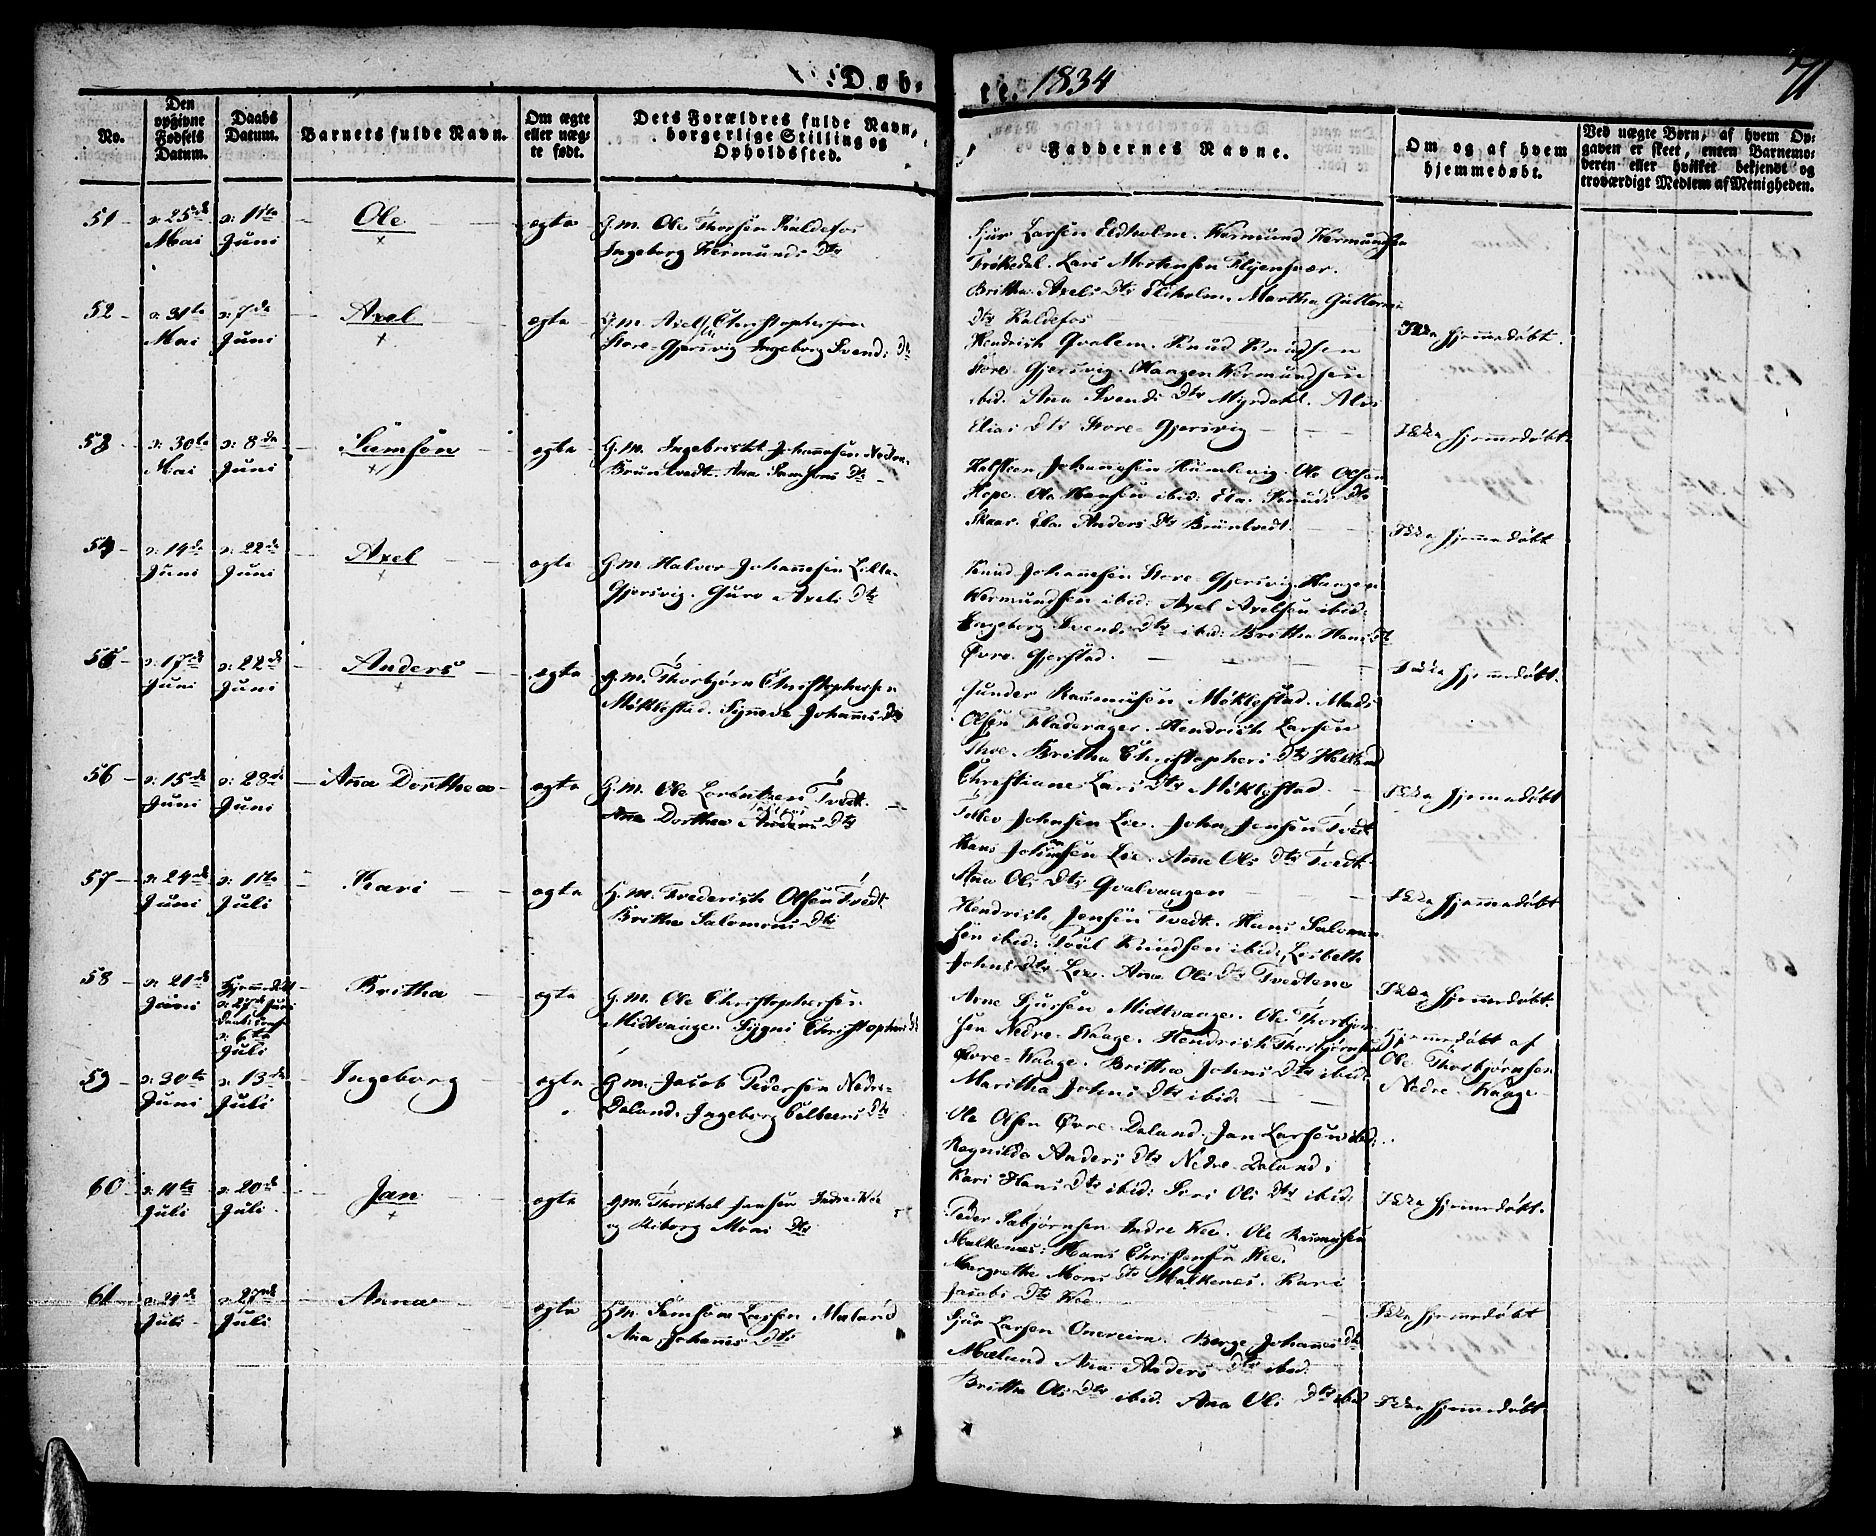 Døb-
te. 1834
71
No.
Den opgivne Fødsels Datum.
Daabs Datum.
Barnets fulde Navn.
Om ægte eller uæg-te født.
Dets Forældres fulde Navn, borgerlige Stilling og Opholdssted.
Faddernes Navne.
Om og af hvem hjemmedøbt.
Ved uægte Børn, af hvem Op-
gaven er skeet, enten Barnemo-
deren eller hvilket bekjendt og
troværdigt Medlem af Menigheden.
51 25de Mai 1ste Juni Ole ægte G.m. Ole Thorsen Kaldefos
Ingeborg Wermunds Dtr
Sjur Larsen Eldholm. Wermund Wermundsen
Frøkedal. Lars Mortensen
Britha Axels Dtr Eldholm. Martha Guttorms
Dtr Kaldefos
Ikke hjemmedøbt.
52 31te Mai 7de Juni Axel ægte G.m. Axel Christophersen
Store-Gjersvig Ingeborg Svends Dtr
Hendrich Qvalem. Knud Knudsen
Store-Gjersvig. Haagen Wermundsen
ibid: Anna Svends Dtr Myrdahl. Alis
Elias Dtr Store-Gjersvig
Ikke hjemmedøbt.
53 30te Mai 8de Juni Samson ægte G.m. Ingebricht Johannesen Nedre-
Bruntvedt. Ana Samsons Dtr
Halsteen Johannesen Humlevig. Ole Olsen
Hope. Ole Hansen ibid: Ela Knuds Dtr
Skaar. Ela Anders Dtr Bruntvedt.
Ikke hjemmedøbt
54 14de Juni 22de Juni Axel ægte G.m. Halvor Johannesen Likle-
Gjersvig. Guro Axels Dtr
Knud Johannesen Store-Gjersvig. Haagen
Wermundsen ibid: Axel Axelsen ibid:
Ingeborg Svends Dtr ibid: Britha Hans Dtr
Øvre-Gjerstad.
Ikke hjemmedøbt.
55 17de Juni 22de Juni Anders ægte G.m. Thorbjørn Christophersen
Møklestad. Synneva Johannes Dtr
Gunder Rasmusen Møklestad. Mads
Olsen Fladerager. Hendrich Larsen
Thoe. Britha Christophers Dtr
Christiane Lars Dtr Møklestad.
Ikke hjemmedøbt
56 15de Juni 23de Juni Ana Dorthea ægte G.m. Ole Lorentzen Tvedt.
Ana Dorthea Anders Dtr
Tollev Johnsen Lie. John Jensen Tvedt
Hans Johansen Lie. Anna Ols Dtr Tvedt
Anna Ols Dtr Qvalvaagen
Ikke hjemmedøbt
57 24de Juni 1ste Juli Kari ægte G.m. Frederich Olsen Tvedt
Britha Salomons Dtr
Hendrich Jensen Tvedt. Hans Salomon-
sen ibid: Poul Knudsen ibid: Lisbeth
Johns Dtr Lie. Anna Ols Dtr Tvedtene
Ikke hjemmedøbt.
58 21de Juni Hjemmedøbt 27de Juni 6te Juli Britha ægte G.m. Ole Christophersen
Midtvaage. Sygni Christophers Dtr
Arne Sjursen Midtvaage. Ole Thorbjørn-
sen Nedre-Waage. Hendrich Thorbjørnsen
Øvre-Waage. Britha Johns Dtr ibid:
Maritha Johns Dtr ibid:
Hjemmedøbt af
Ole Thorbjørnsen
Nedre-Waage
59 30te Juni 13de Juli Ingeborg ægte G.m. Jacob Pedersen Nedre-
Daland. Ingeborg Dtr
Ole Olsen Øvre-Daland. Jan Larsen ibid:
Ragnilda Anders Dtr Nedre-Daland.
Kari Hans Dtr ibid: Siri Ols Dtr ibid:
Ikke hjemmedøbt.
60 11te Juli 20de Juli Jan ægte G.m. Thorchel Jansen Indre-Wee
og Kiborg Mons Dtr
Peder Sabjørnsen Indre Wee. Ole Rasmusen
Malkenes: Hans Christensen Wee.
Margrethe Mons Dtr Malkenes. Kari
Jacobs Dtr Wee
Ikke hjemmedøbt
61 24de Juli 27de Juli Anna ægte G.m. Samson Larsen Maland
Ana Johannes Dtr
Sjur Larsen Onereim. Børge Johannes Dtr
Mæland Anna Anders Dtr ibid:
Britha Ols Dtr ibid: Anna Ols Dtr ibid
Ikke hjemmedøbt.